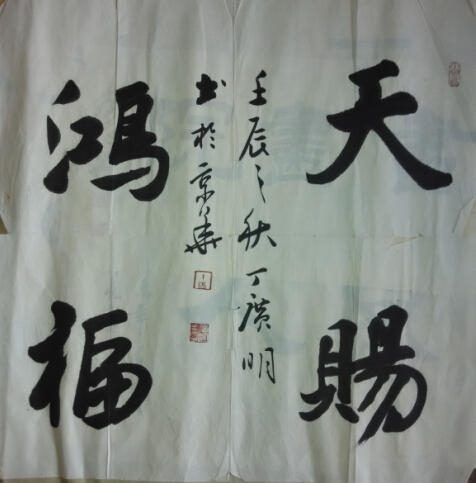 天賜
鴻福
壬辰之秋丁廣明
书於京華